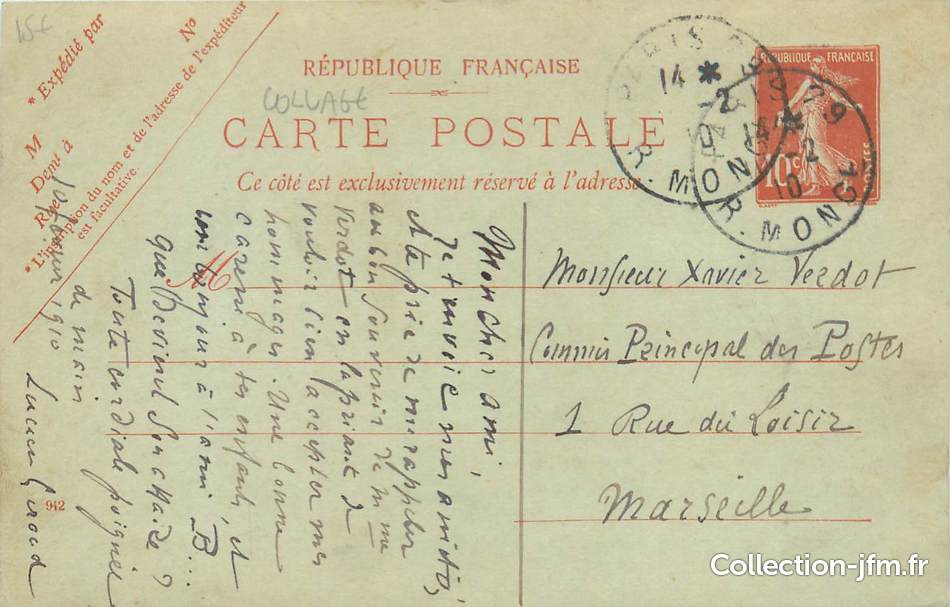 15€
* Expédié par
N°
M
Demt à
Rue
* L'inscription du nom et de l'adresse de l'expéditeur
est facultative.
RÉPUBLIQUE FRANÇAISE
COLLAGE
CARTE POSTALE
Ce côté est exclusivement réservé à l'adresse.
PARIS
14 *
-2
R. MON
PARIS 29
14 *
-2
10
R. MONGE
RÉPUBLIQUE FRANÇAISE
10c
POSTES
M
Monsieur Xavier Verdot
Commis Principal des Postes
1 Rue du Loisir
Marseille
Mon cher ami,
Je t'envoie mes amitiés,
et te prie de me rappeler
au bon souvenir de Mme
Verdot en la priant de
vouloir bien accepter mes
hommages. Une bonne
caresse à tes enfants, et
bonjour à l'ami B...
Que devient Son affaire ?
Toute cordiale poignée
de main
1910
Lucien
942
Collection-jfm.fr